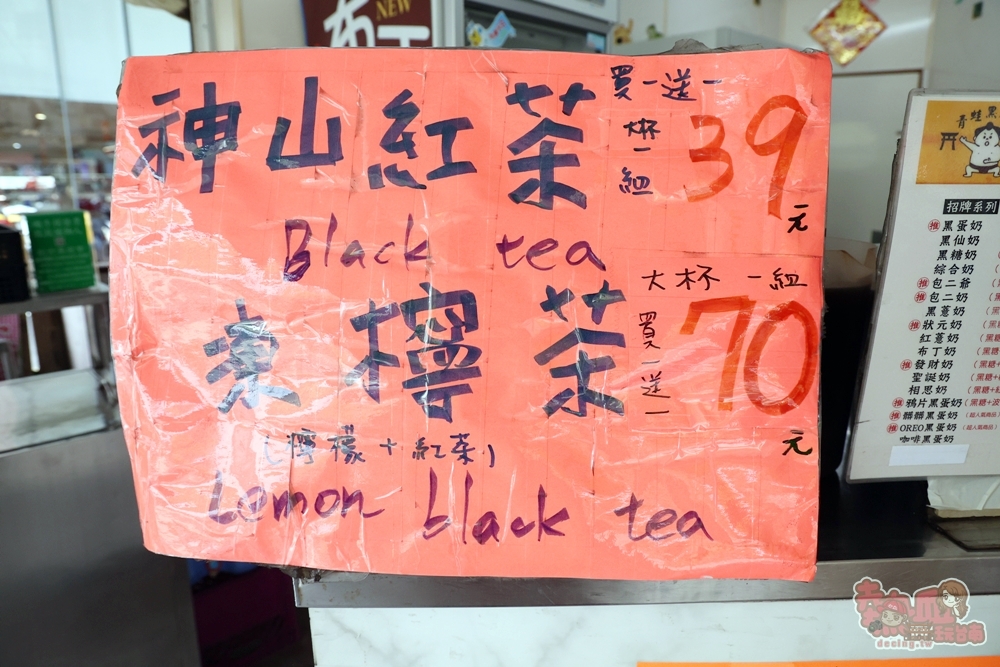 布丁
NEW
神山紅茶
買一送一
大杯
一組
39元
Black tea
凍檸茶
大杯 一組
買一送一
70元
(檸檬+紅茶)
Lemon black tea
青蛙黑
招牌系列
推 黑蛋奶
黑仙奶
黑糖奶
綜合奶
推 包二爺
推 包二奶
黑薏奶
推 狀元奶
紅薏奶
布丁奶
推 發財奶
聖誕奶
相思奶
推 鴉片黑蛋奶
推 髒髒黑蛋奶
推 OREO黑蛋奶
咖啡黑蛋奶
熱血玩台南
decing.tw